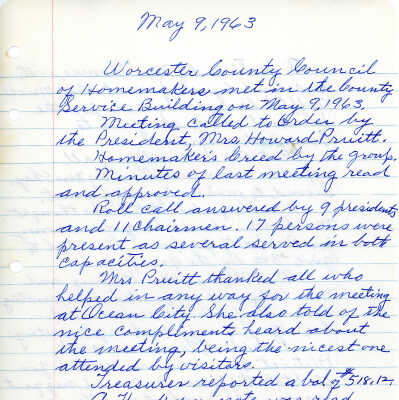 May 9, 1963
Worcester County Council
of Homemakers met in the County
Service Building on May 9, 1963.
Meeting called to Order by
the President, Mrs. Howard Pruitt.
Homemaker's Creed by the group.
Minutes of last meeting read
and approved.
Roll call answered by 9 presidents
and 11 Chairmen. 17 persons were
present as several served in both
capacities.
Mrs Pruitt thanked all who
helped in any way for the meeting
at Ocean City. She also told of the
nice compliments heard about
the meeting, being the nicest one
attended by visitors.
Treasurer reported a bal of $518.12.
was read